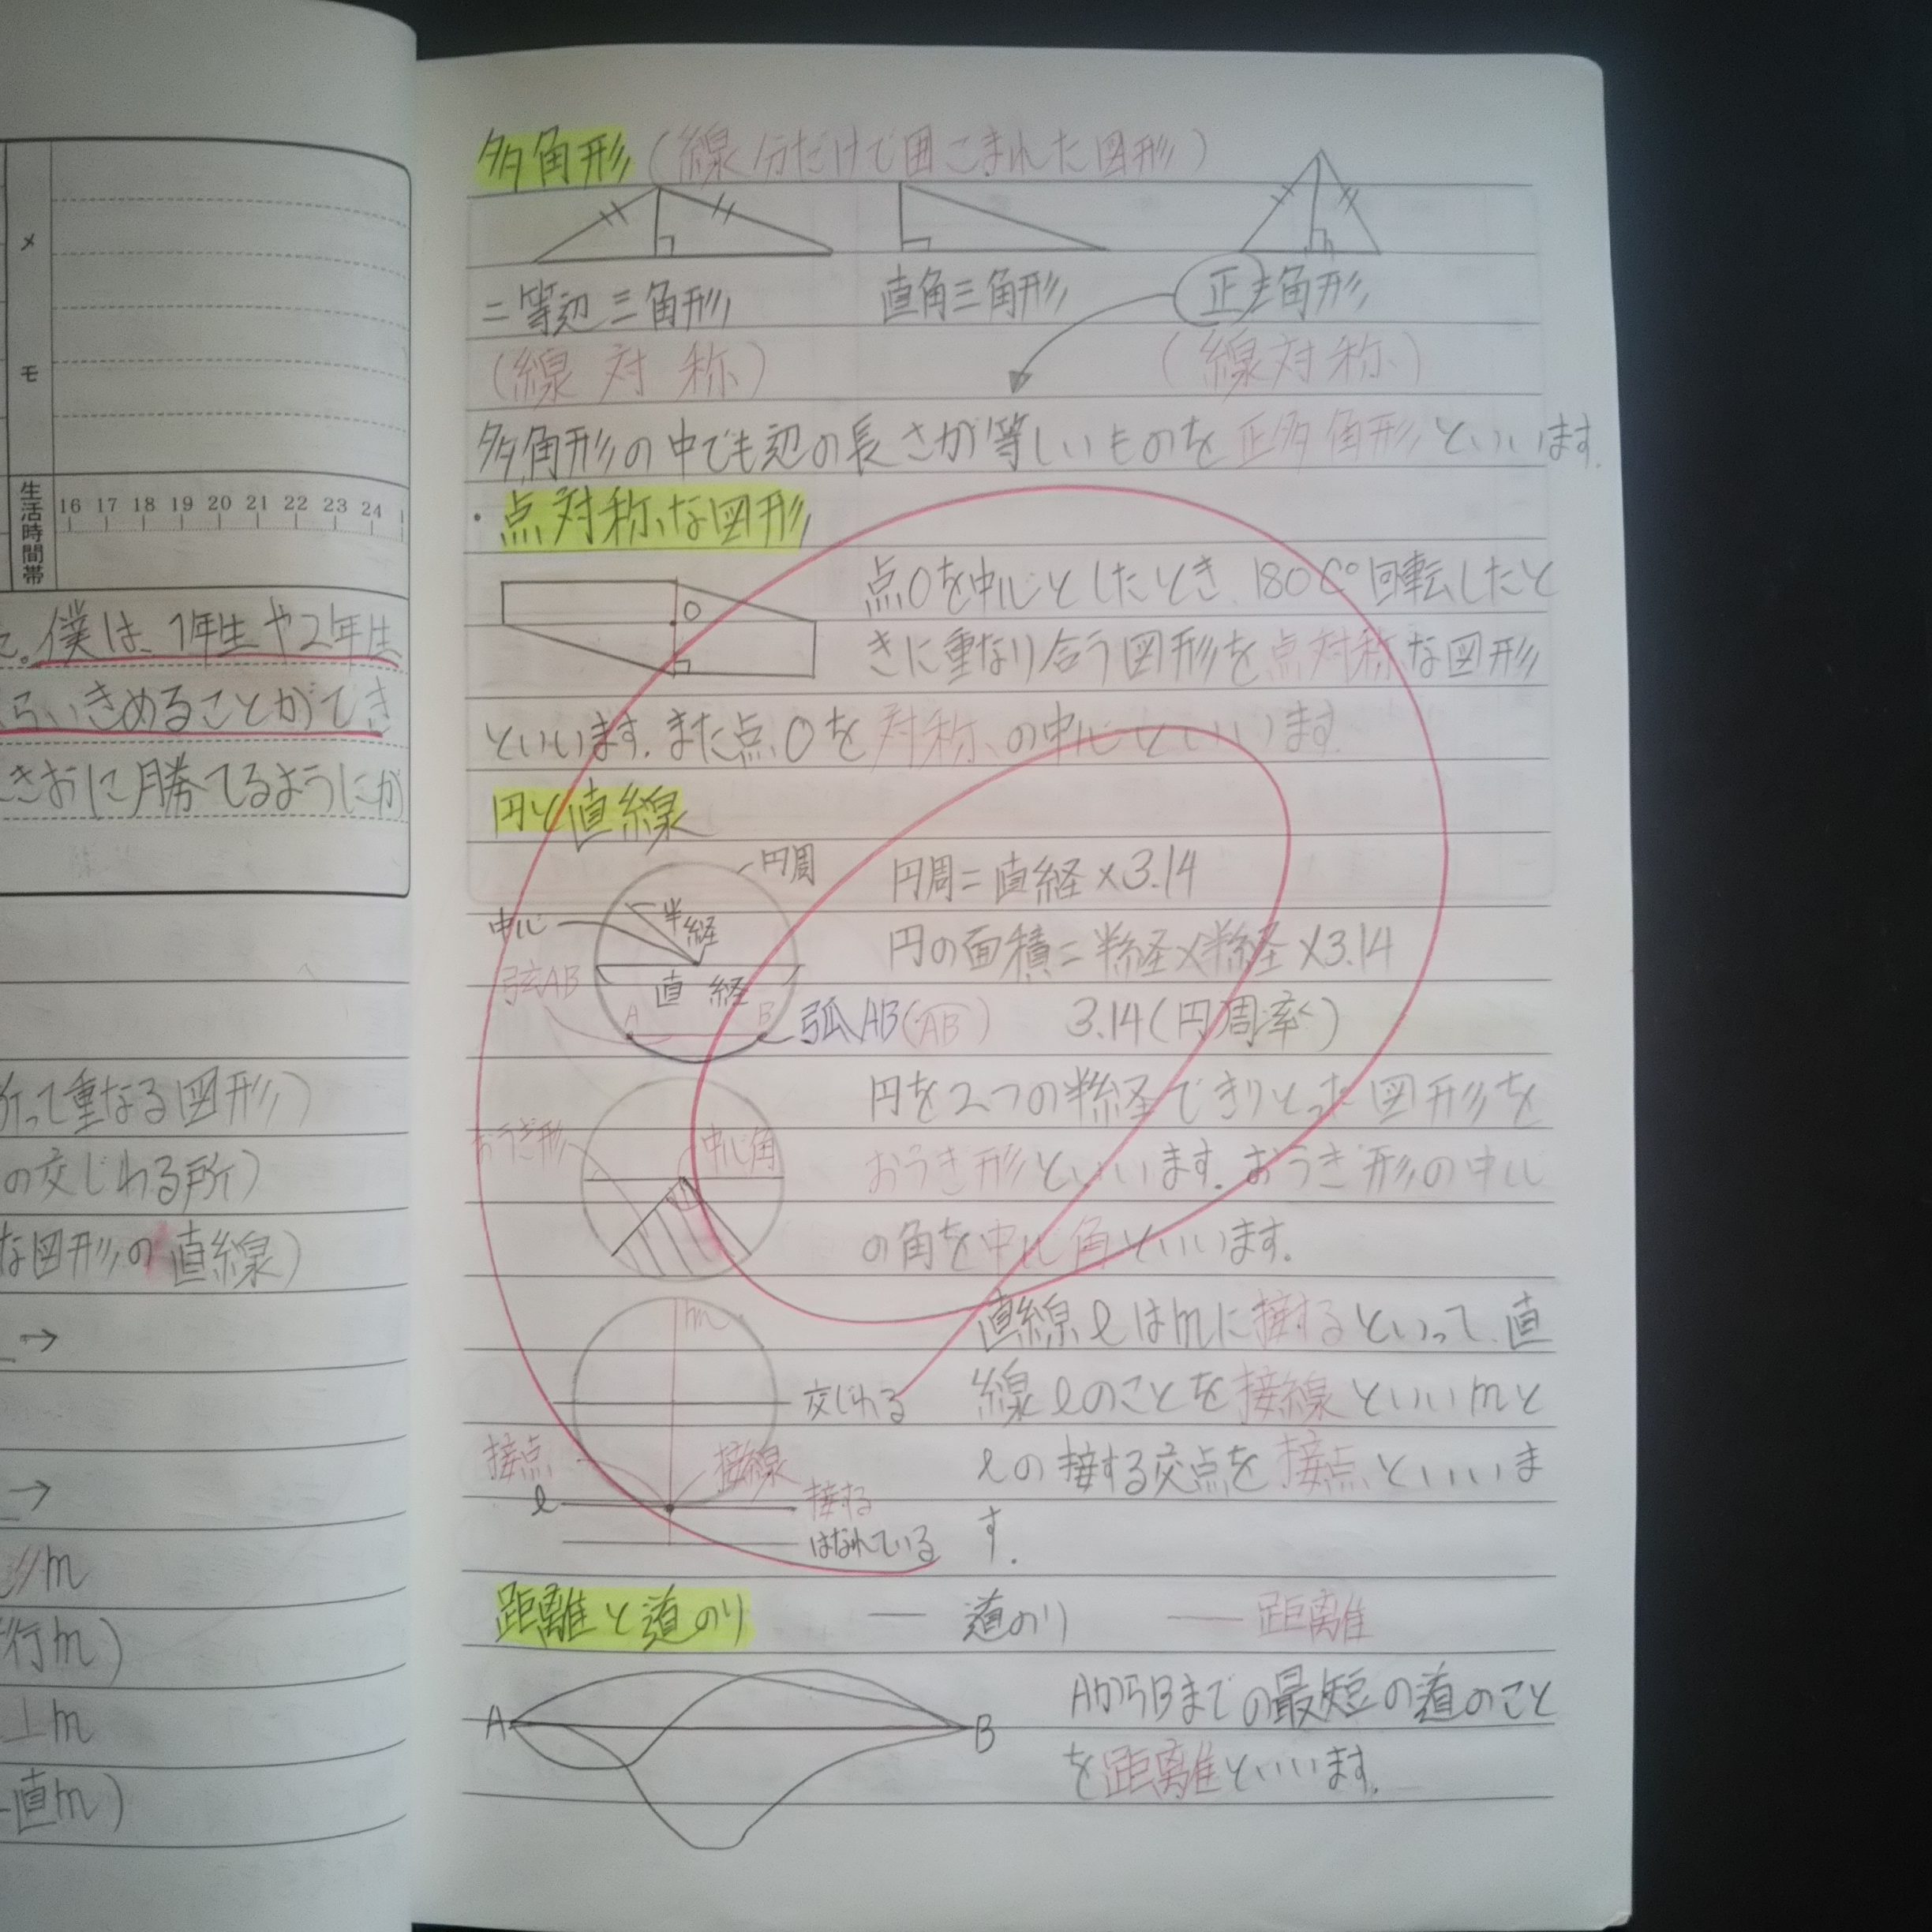 メモ
生活時間帯
16 17 18 19 20 21 22 23 24
た。僕は、1年生や2年生
らいきめることができ
きおに勝てるようにが
折って重なる図形)
の交じわる所)
な図形の直線)
→
→
//m
行m)
⊥m
直m)
多角形(線分だけで囲こまれた図形)
二等辺三角形 直角三角形 正三角形
(線対称) (線対称)
多角形の中でも辺の長さが等しいものを正多角形といいます.
・点対称な図形
O
点Oを中心としたとき、180C°回転したと
きに重なり合う図形を点対称な図形
といいます.また点Oを対称の中心といいます.
円と直線
円周
中心
半経
直経
弦AB
A B
弧AB(AB)
円周=直経×3.14
円の面積=半経×半経×3.14
3.14(円周率)
おうぎ形 中心角
円を2つの半経できりとった図形を
おうぎ形といいます.おうぎ形の中心
の角を中心角といいます.
m
交じわる
接点 接線
ℓ 接する
はなれている
直線ℓはmに接するといって、直
線ℓのことを接線といいmと
ℓの接する交点を接点といいま
す.
距離と道のり ― 道のり ― 距離
A B
AからBまでの最短の道のこと
を距離といいます.